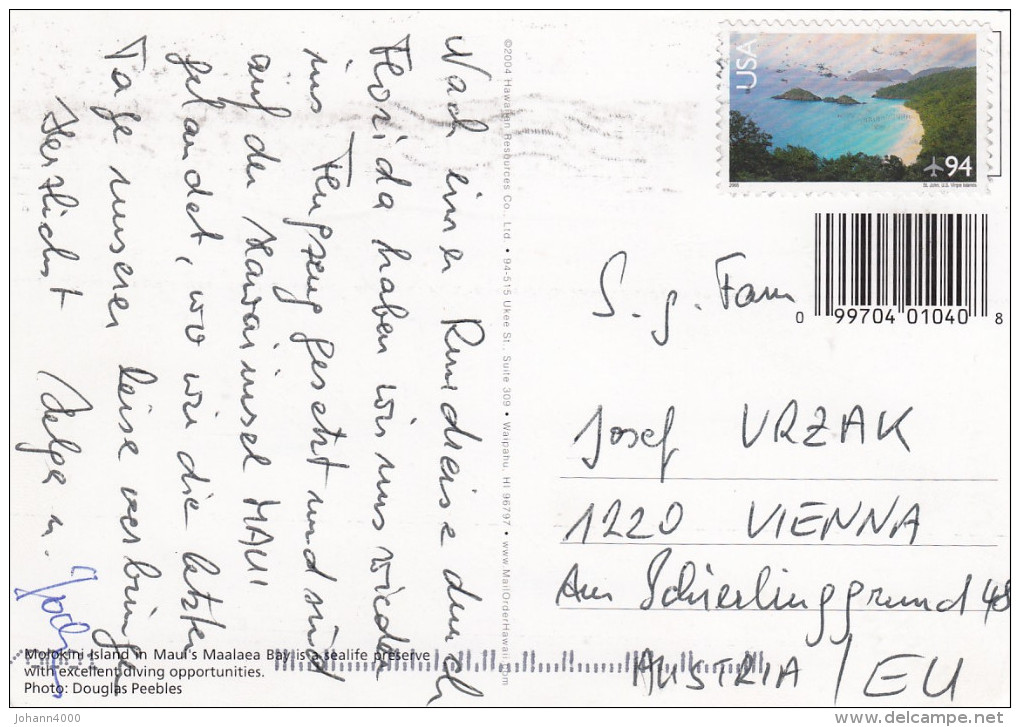 Nach einer Rundreise durch
Florida haben wir uns wieder
ins Flugzeug gesetzt und sind
auf der Hawaiinsel MAUI
gelandet, wo wir die letzten
Tage unserer Reise verbringen
Herzlichst Helga u.
©2004 Hawaiian Resources Co., Ltd • 94-515 Ukee St., Suite 309 • Waipahu, HI 96797 • www.MailOrderHawaii.com
USA
94
2008
St. John, U.S. Virgin Islands
0 99704 01040 8
S. g. Fam
Josef VRZAK
1220 VIENNA
Am Schierlinggrund 48
AUSTRIA / EU
Molokini Island in Maui's Maalaea Bay is a sealife preserve
with excellent diving opportunities.
Photo: Douglas Peebles
johann4000
www.delcampe.net